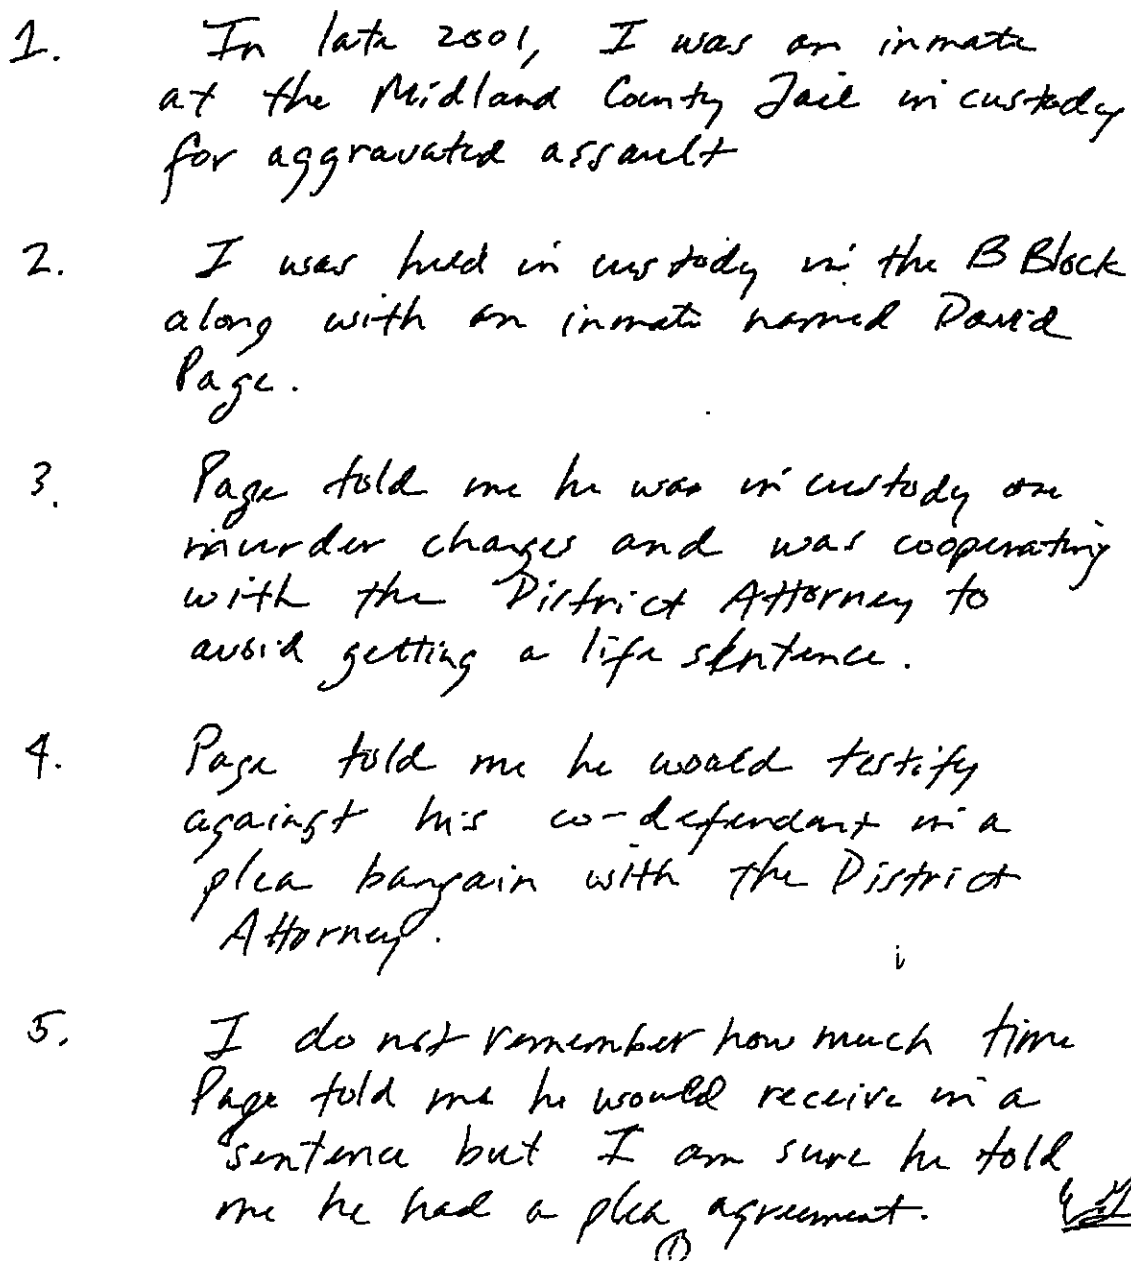 1. In late 2001, I was an inmate
at the Midland County Jail in custody
for aggravated assault
2. I was held in custody in the B Block
along with an inmate named David
Page.
3. Page told me he was in custody on
murder charges and was cooperating
with the District Attorney to
avoid getting a life sentence.
4. Page told me he would testify
against his co-defendant in a
plea bargain with the District
Attorney.
5. I do not remember how much time
Page told me he would receive in a
sentence but I am sure he told
me he had a plea agreement.
①